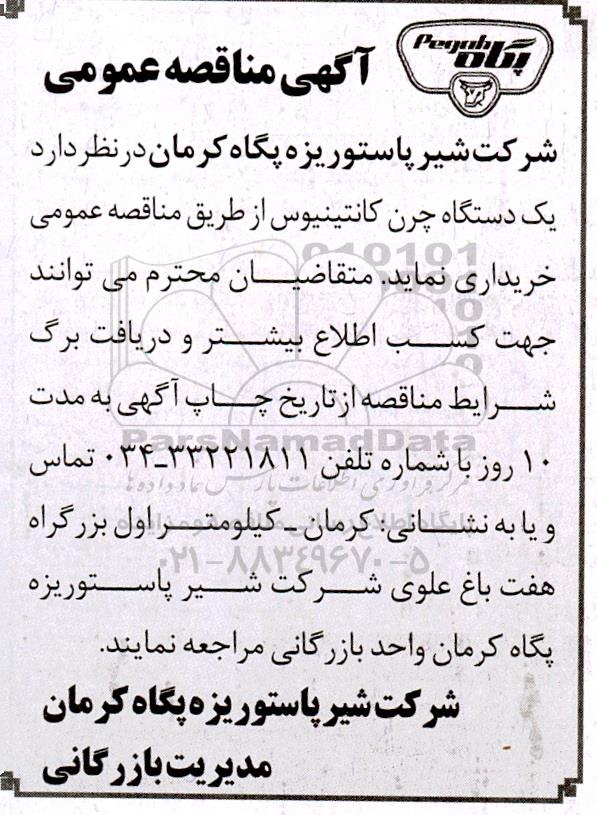 Pegah
پگاه
آگهی مناقصه عمومی
شرکت شیر پاستوریزه پگاه کرمان در نظر دارد
یک دستگاه چرن کانتینیوس از طریق مناقصه عمومی
خریداری نماید. متقاضیان محترم می توانند
جهت کسب اطلاع بیشتر و دریافت برگ
شرایط مناقصه از تاریخ چاپ آگهی به مدت
ParsNamadData
۱۰ روز با شماره تلفن ۳۳۲۲۱۸۱۱-۰۳۴ تماس
و یا به نشانی: کرمان - کیلومتر اول بزرگراه
۰۲۱-۸۸۳۴۹۶۷۰-۵
هفت باغ علوی شرکت شیر پاستوریزه
پگاه کرمان واحد بازرگانی مراجعه نمایند.
شرکت شیر پاستوریزه پگاه کرمان
مدیریت بازرگانی